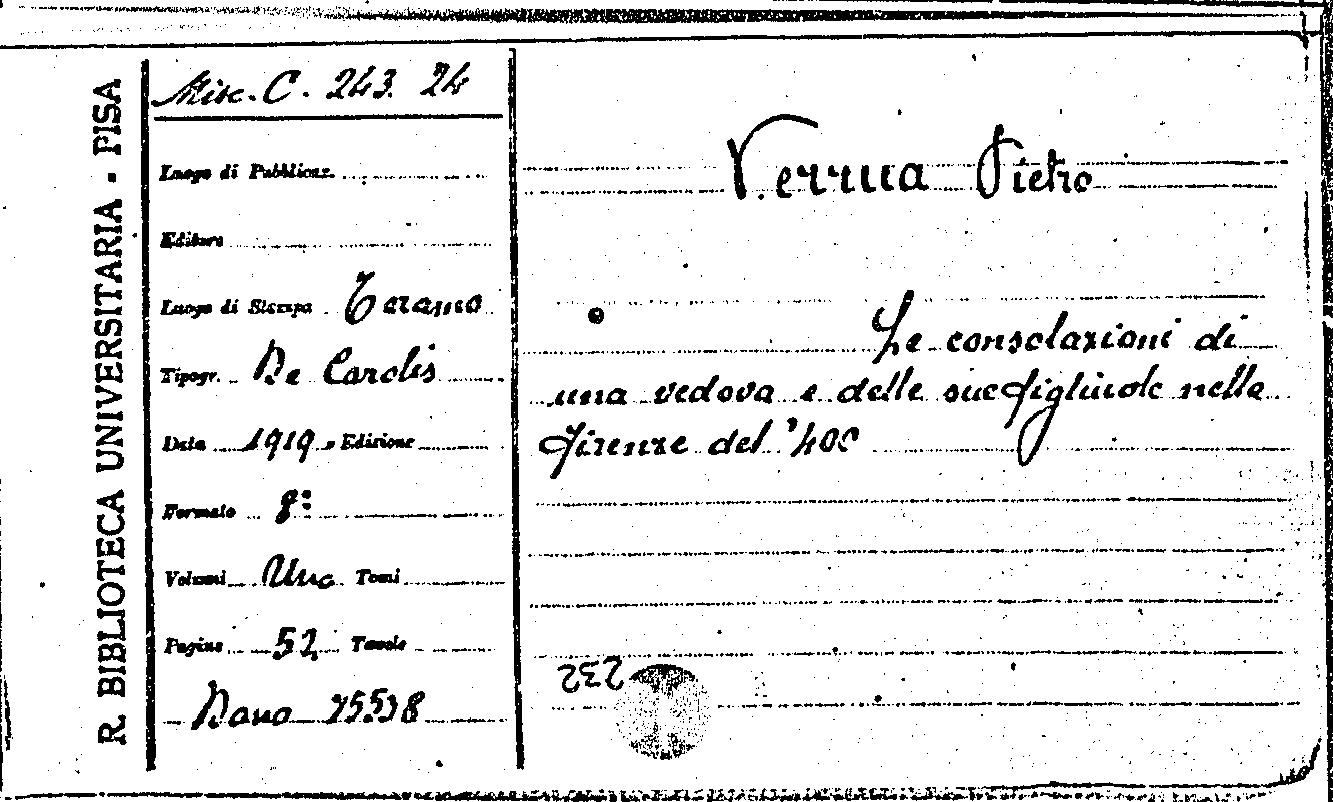 R. BIBLIOTECA UNIVERSITARIA - PISA
Misc. C. 243. 24
Luogo di Pubblicaz.
Editore
Luogo di Stampa Teramo
Tipogr. De Carolis
Data 1919 Edizione
Formato 8°
Volumi Uno Tomi
Pagine 52 Tavole
Dono 75538
Verrua Pietro
Le consolazioni di
una vedova e delle sue figliuole nella
Firenze del '400
232